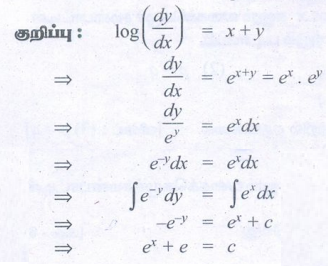 குறிப்பு : log(dy/dx) = x + y
⇒ dy/dx = e^{x+y} = e^x . e^y
⇒ dy/e^y = e^x dx
⇒ e^{-y}dx = e^x dx
⇒ ∫e^{-y} dy = ∫e^x dx
⇒ -e^{-y} = e^x + c
⇒ e^x + e = c